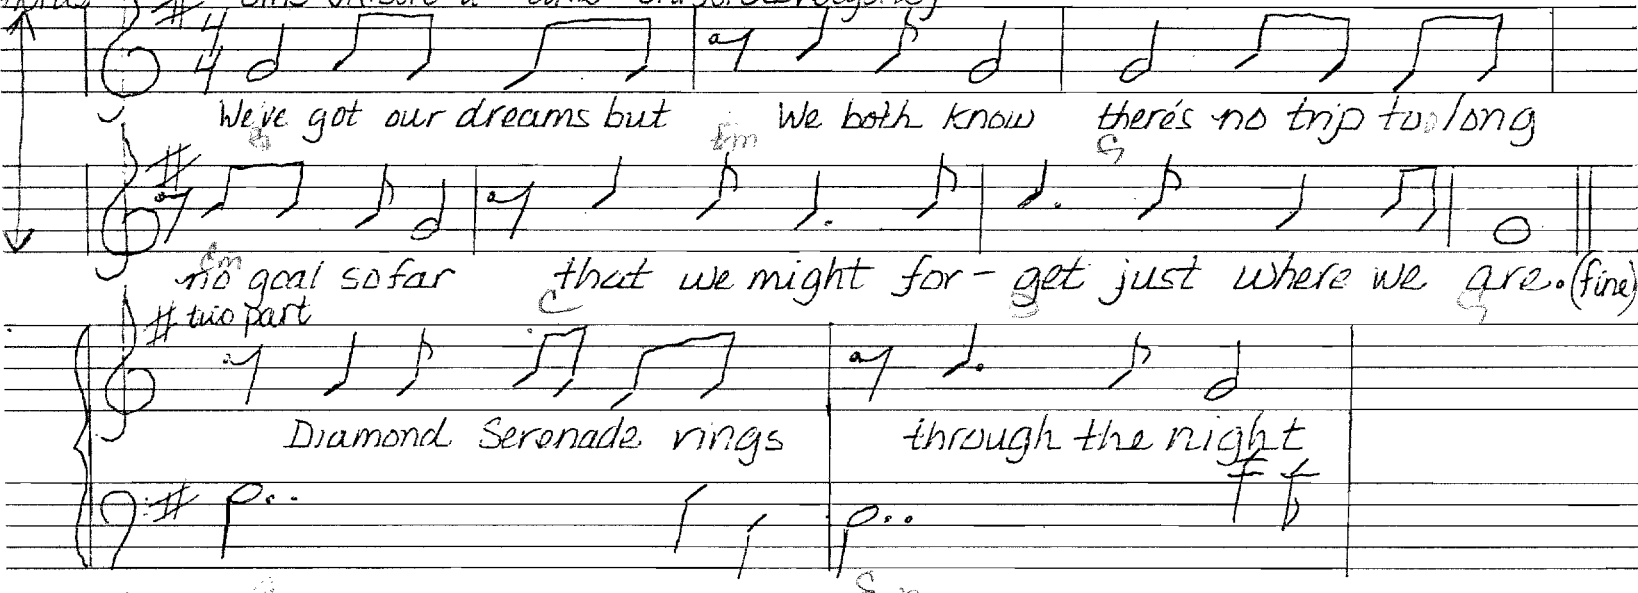 We've got our dreams but We both know there's no trip too long
Em G
no goal so far that we might for- get just where we are. (fine)
C G
two part
Diamond Serenade rings through the night